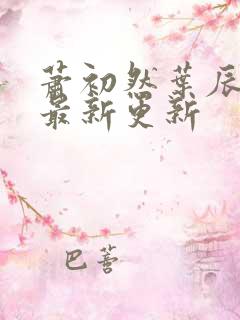 萧初然葉辰
最新更新
巴蕾